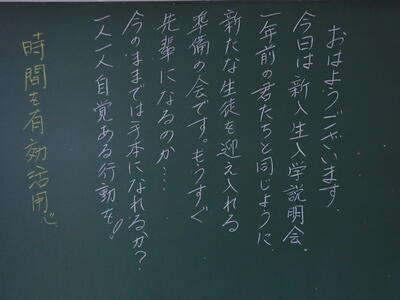 おはようございます。
今日は新入生入学説明会。
一年前の君たちと同じように
新たな生徒を迎え入れる
準備の会です。もうすぐ
先輩になるのか…
今のままでは手本になれるか?
一人一人自覚ある行動を!
時間を有効活用し